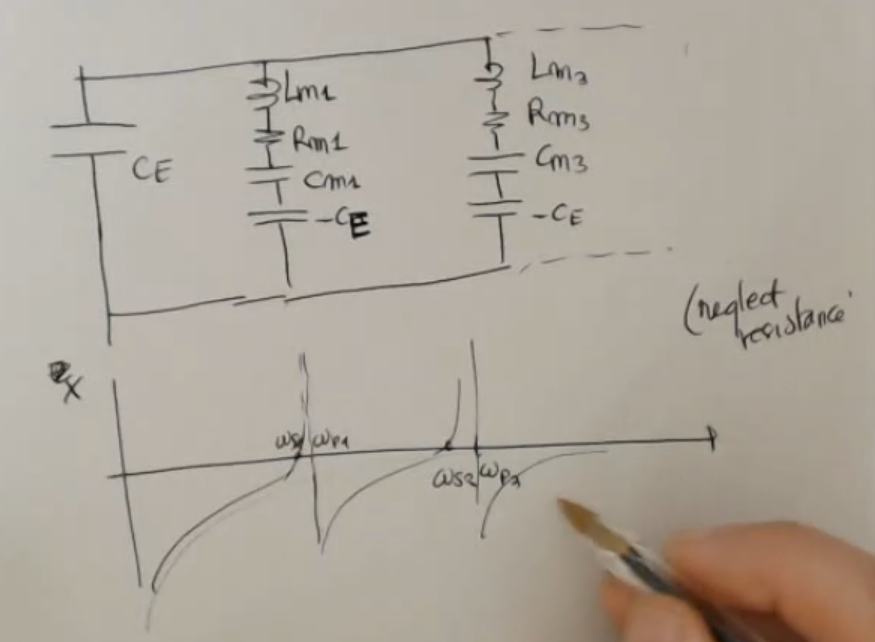 Lm1
Rm1
CE
Cm1
-CE
Lm3
Rm3
Cm3
-CE
(neglect
resistance
X
ωs1
ωp1
ωs2
ωp2